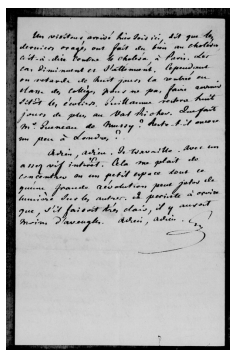 Un visiteur, arrivé hier soir ici, dit que les
derniers orages ont fait du bien au choléra
c'est-à-dire contre le choléra, à Paris. Les
cas diminuent et s'atténuent. Cependant
on retarde de huit jours la rentrée en
classe des collèges, pour ne pas faire revenir
sitôt les écoliers. Guillaume restera huit
jours de plus au Val Richer. Que fait
Mr. Gueneau de Mussy ? Reste-t-il encore
un peu à Londres ?
Adieu, adieu. Je travaille. Avec un
assez vif intérêt. Cela me plait de
concentrer en un petit espace tout ce
qu'une grande révolution peut jeter de
lumière sur les autres. Je persiste à croire
que, s'il faisoit très clair, il y auroit
moins d'aveugles. Adieu, adieu.